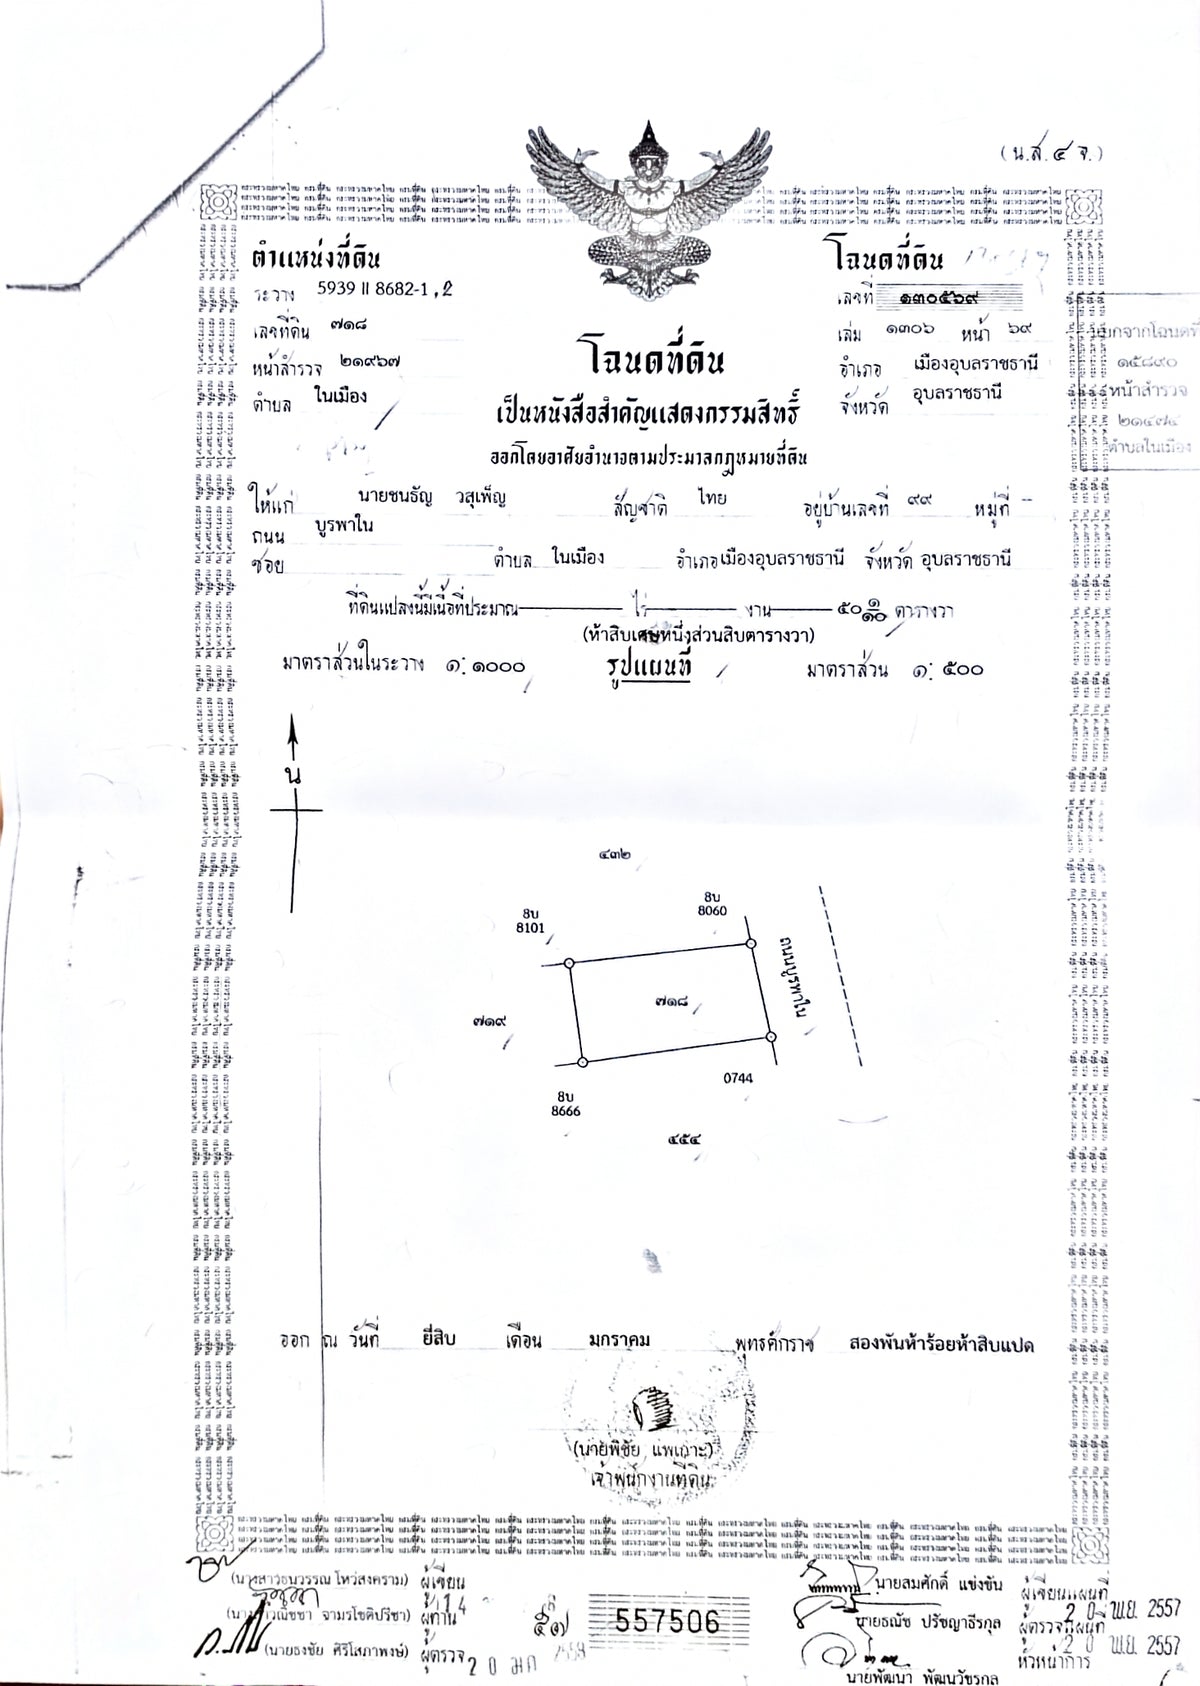 (น.ส.๔ จ.)
ตำแหน่งที่ดิน
ระวาง 5939 II 8682-1,2
เลขที่ดิน ๗๑๘
หน้าสำรวจ ๒๑๙๖๗
ตำบล ในเมือง
โฉนดที่ดิน
เลขที่ ๑๓๐๕๖๙
เล่ม ๑๓๐๖ หน้า ๖๙
อำเภอ เมืองอุบลราชธานี
จังหวัด อุบลราชธานี
๑๕๘๙๐
หน้าสำรวจ
๒๑๔๗๔
ตำบลในเมือง
โฉนดที่ดิน
เป็นหนังสือสำคัญแสดงกรรมสิทธิ์
ออกโดยอาศัยอำนาจตามประมวลกฎหมายที่ดิน
ให้แก่ นายชนธัญ วสุเพ็ญ สัญชาติ ไทย อยู่บ้านเลขที่ ๙๙ หมู่ที่ --
ถนน บูรพาใน
ซอย ตำบล ในเมือง อำเภอ เมืองอุบลราชธานี จังหวัด อุบลราชธานี
ที่ดินแปลงนี้มีเนื้อที่ประมาณ ไร่ งาน ๕๐ ๑/๑๐ ตารางวา
(ห้าสิบเศษหนึ่งส่วนสิบตารางวา)
มาตราส่วนในระวาง ๑: ๑๐๐๐ รูปแผนที่ มาตราส่วน ๑: ๕๐๐
น
๔๓๒
8บ
8101
8บ
8060
ถนนบูรพาใน
๗๑๘
๗๑๙
0744
8บ
8666
๔๕๔
ออก ณ วันที่ ยี่สิบ เดือน มกราคม พุทธศักราช สองพันห้าร้อยห้าสิบแปด
(นายพิชัย แพเกาะ)
เจ้าพนักงานที่ดิน
(นางสาวธนวรรณ โหว่สงคราม) ผู้เขียน
จามรโชติปรีชา) ผู้ทาน
(นายธงชัย ศิริโสภาพงษ์) ผู้ตรวจ
20 มค 2558
557506
นายสมศักดิ์ แข่งขัน ผู้เขียนแผนที่
20 พ.ย. 2557
นายธณัช ปรัชญาธีรกุล ผู้ตรวจแผนที่
20 พ.ย. 2557
หัวหน้าการ
นายพัฒนา พัฒนวัชรกุล